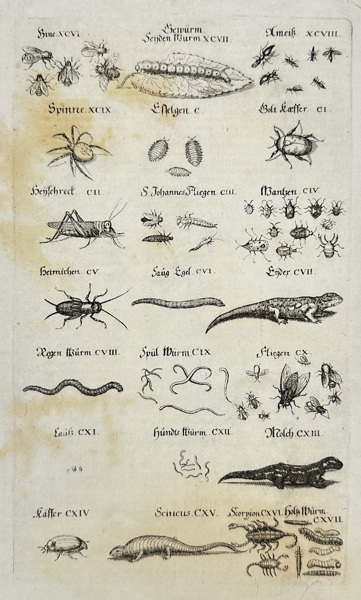 Gewürm
Jme. XCVI Seyden Wurm XCVII Ameiß XCVIII
Spinne XCIX Eselgen C. Golt Kæffer CI
Heyschreck CII S. Johannes Fliegen CIII. Wantzen CIV
Heimichen CV Eügl Egel CVI Eyder CVII
Regen Würm CVIII. Spül Würm CIX Fliegen CX
Lauß CXI. Hundts Würm. CXII. Molch CXIII
Käffer CXIV Scincus. CXV. Skorpion CXVI Holtz Würm
CXVII